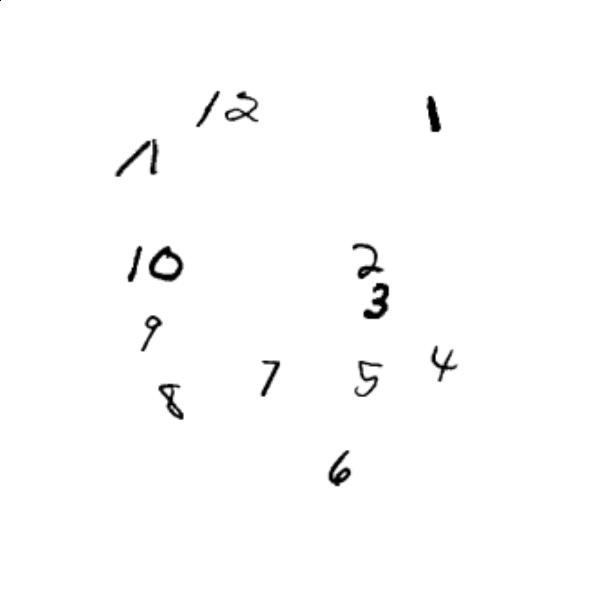 12 1
11
10 2
3
9
4
7 5
8
6